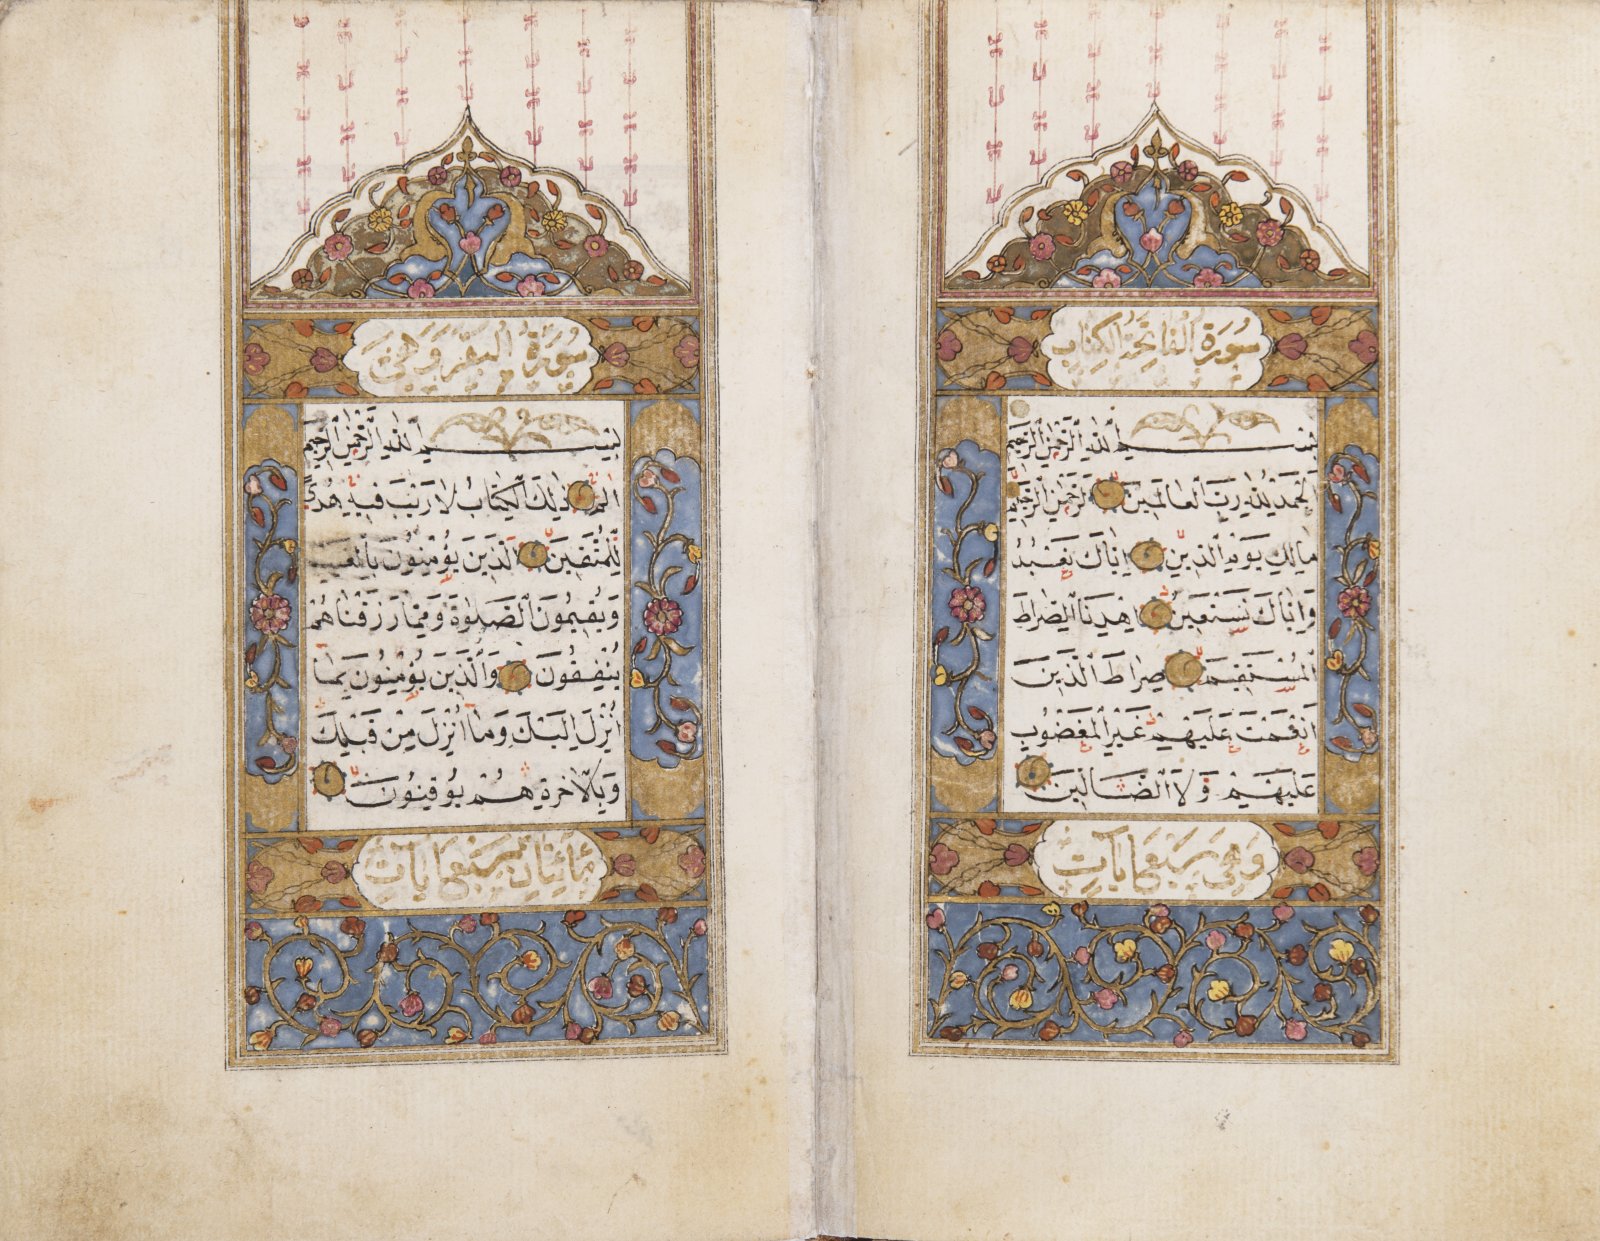 سُورَةُ الْفَاتِحَةِ الْكِتَابِ
بِسْمِ اللّٰهِ الرَّحْمٰنِ الرَّحِيمِ
اَلْحَمْدُ لِلّٰهِ رَبِّ الْعَالَمِينَ اَلرَّحْمٰنِ الرَّحِيمِ
مَالِكِ يَوْمِ الدِّينِ اِيَّاكَ نَعْبُدُ
وَاِيَّاكَ نَسْتَعِينُ اِهْدِنَا الصِّرَاطَ
الْمُسْتَقِيمَ صِرَاطَ الَّذِينَ
اَنْعَمْتَ عَلَيْهِمْ غَيْرِ الْمَغْضُوبِ
عَلَيْهِمْ وَلَا الضَّالِّينَ
وَهِيَ سَبْعُ اٰيَاتٍ
سُورَةُ الْبَقَرَةِ وَهِيَ
بِسْمِ اللّٰهِ الرَّحْمٰنِ الرَّحِيمِ
الٓمٓ ذٰلِكَ الْكِتَابُ لَا رَيْبَ فِيهِ هُدًى
لِلْمُتَّقِينَ اَلَّذِينَ يُؤْمِنُونَ بِالْغَيْبِ
وَيُقِيمُونَ الصَّلٰوةَ وَمِمَّا رَزَقْنَاهُمْ
يُنْفِقُونَ وَالَّذِينَ يُؤْمِنُونَ بِمَا
اُنْزِلَ اِلَيْكَ وَمَا اُنْزِلَ مِنْ قَبْلِكَ
وَبِالْاٰخِرَةِ هُمْ يُوقِنُونَ
مِائَتَانِ سَبْعُ اٰيَاتٍ